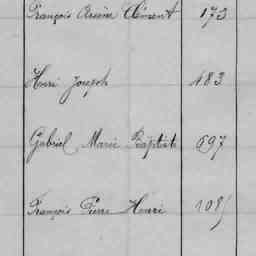 François Arsène Clément 173
Henri Joseph 483
Gabriel Marie Baptiste 697
François Pierre Henri